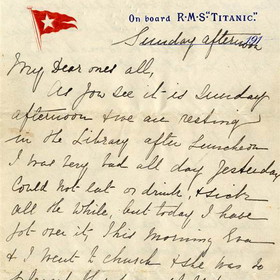 On board R·M·S "TITANIC."
Sunday afternoon 191
My Dear ones all,
As you see it is Sunday
afternoon & we are resting
in the Library after Luncheon
I was very bad all day yesterday
Could not eat or drink, & sick
all the while, but today I have
got over it, This morning Eva
& I went to church & she was so
pleased they